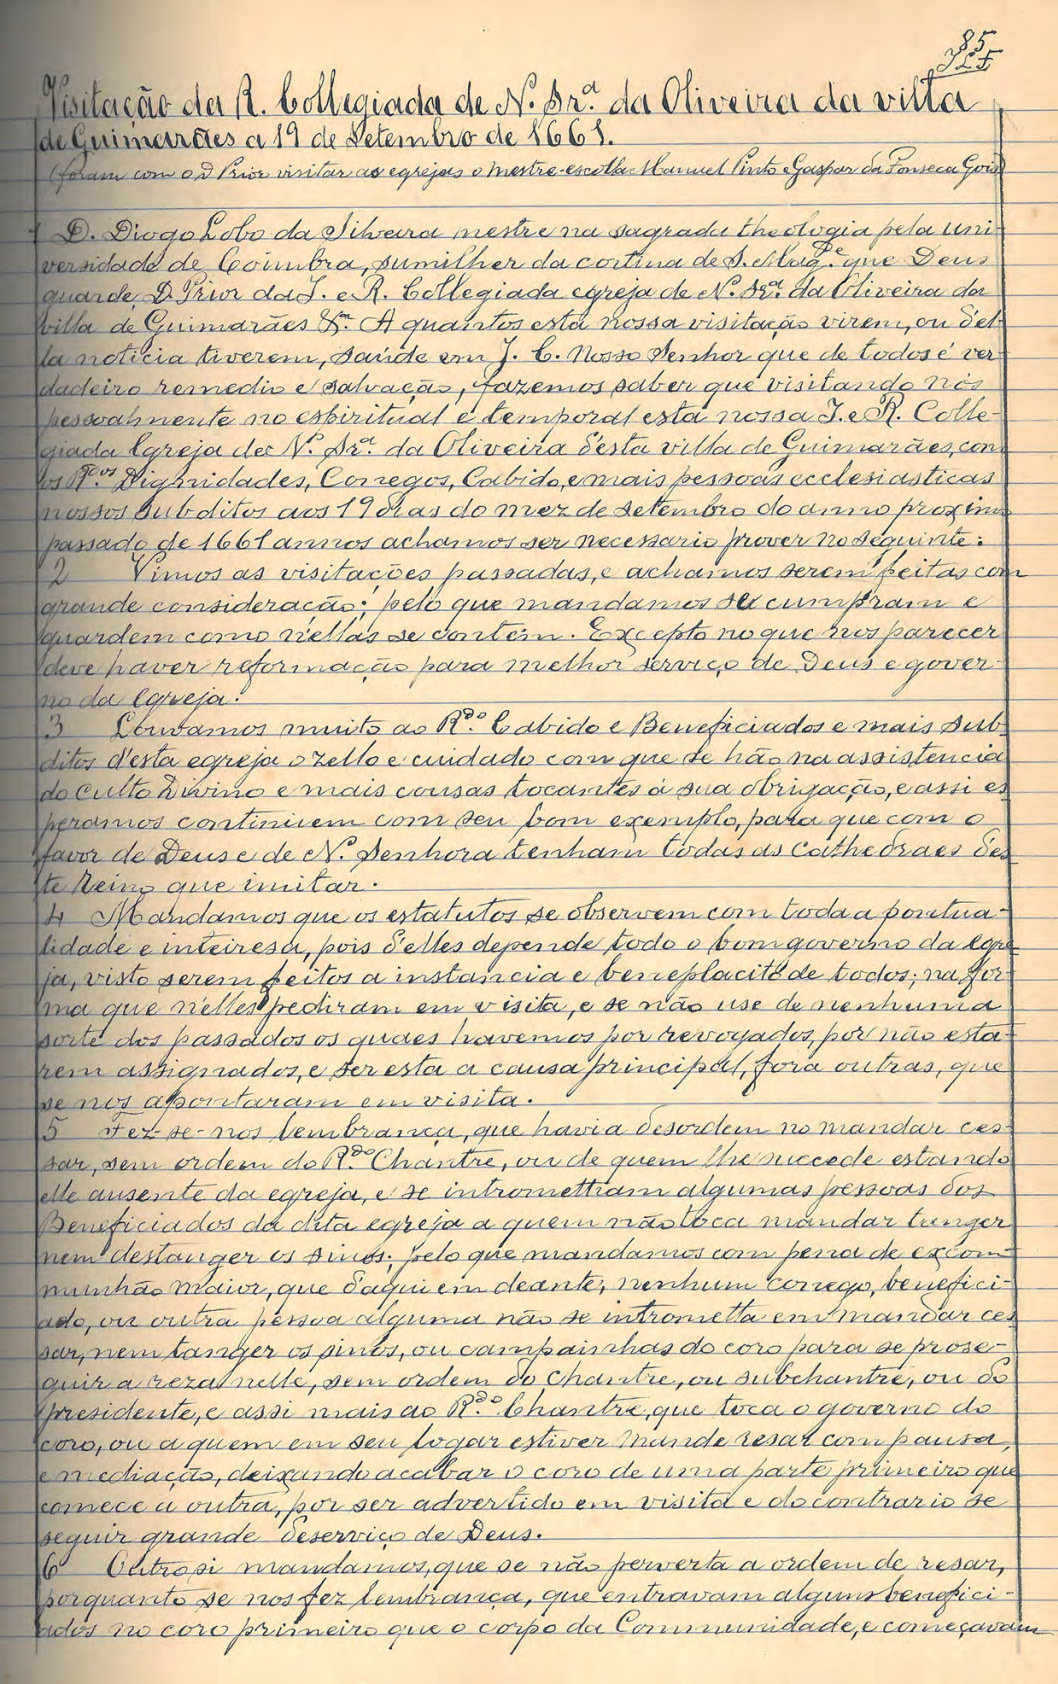 85
Visitação da R. Collegiada de N. Srª. da Oliveira da villa
de Guimarães a 19 de Setembro de 1661.
(foram com o D Prior visitar as egrejas o mestre-escolla Manuel Pinto e Gaspar da Fonseca Gois)
1 D. Diogo Lobo da Silveira mestre na sagrada theologia pela uni-
versidade de Coimbra, sumilher da cortina de S. Mag.de que Deus
guarde, D. Prior da I. e R. Collegiada egreja de N. Srª. da Oliveira da
villa de Guimarães &ª. A quantos esta nossa visitação virem, ou d'el-
la noticia tiverem, saúde em J. C. Nosso Senhor que de todos é ver-
dadeiro remedio e salvação, fazemos saber que visitando nós
pessoalmente no espiritual e temporal esta nossa I. e R. Colle-
giada Egreja de N. Srª. da Oliveira d'esta villa de Guimarães, con
os R.dos Dignidades, Conegos, Cabido, e mais pessoas ecclesiasticas
nossos subditos aos 19 dias do mez de setembro do anno proximo
passado de 1661 annos achamos ser necessario prover no seguinte:
2 Vimos as visitações passadas, e achamos serem feitas com
grande consideração; pelo que mandamos se cumpram e
guardem como n'ellas se contém. Excepto no que nos parecer
deve haver reformação para melhor serviço de Deus e gover-
no da Egreja.
3 Louvamos muito ao R.do Cabido e Beneficiados e mais sub-
ditos d'esta egreja o zello e cuidado com que se hão na assistencia
do culto Divino e mais cousas tocantes á sua obrigação, e assi es-
peramos continuem com seu bom exemplo, para que com o
favor de Deus e de N. Senhora tenham todas as Cathedraes des-
te Reino que imitar.
4 Mandamos que os estatutos se observem com toda a pontua-
lidade e inteiresa, pois d'elles depende todo o bom governo da Egre-
ja, visto serem feitos a instancia e beneplacito de todos; na for-
ma que n'elles pediram em visita, e se não use de nenhuma
sorte dos passados os quaes havemos por revogados, por não esta-
rem assignados, e ser esta a causa principal, fora outras, que
se nos apontaram em visita.
5 Fez-se-nos lembrança, que havia desordem no mandar ces-
sar, sem ordem do R.do Chantre, ou de quem lhe succede estando
elle ausente da egreja, e se intromettiam algumas pessoas dos
Beneficiados da dita egreja a quem não toca mandar tanger
nem destanger os sinos; pelo que mandamos com pena de excom-
munhão maior, que d'aqui em deante, nenhum conego, benefici-
ado, ou outra pessoa alguma não se intrometta em mandar ces-
sar, nem tanger os sinos, ou campainhas do coro para se prose-
guir a reza nelle, sem ordem do Chantre, ou subchantre, ou do
presidente, e assi mais ao R.do Chantre, que toca o governo do
coro, ou a quem em seu logar estiver mande resar com pausa,
e mediação, deixando acabar o coro de uma parte primeiro que
comece a outra, por ser advertido em visita e do contrario se
seguir grande deserviço de Deus.
6 Outrosi mandamos, que se não perverta a ordem de resar,
porquanto se nos fez lembrança, que entravam alguns benefici-
ados no coro primeiro que o corpo da Communidade, e começavam